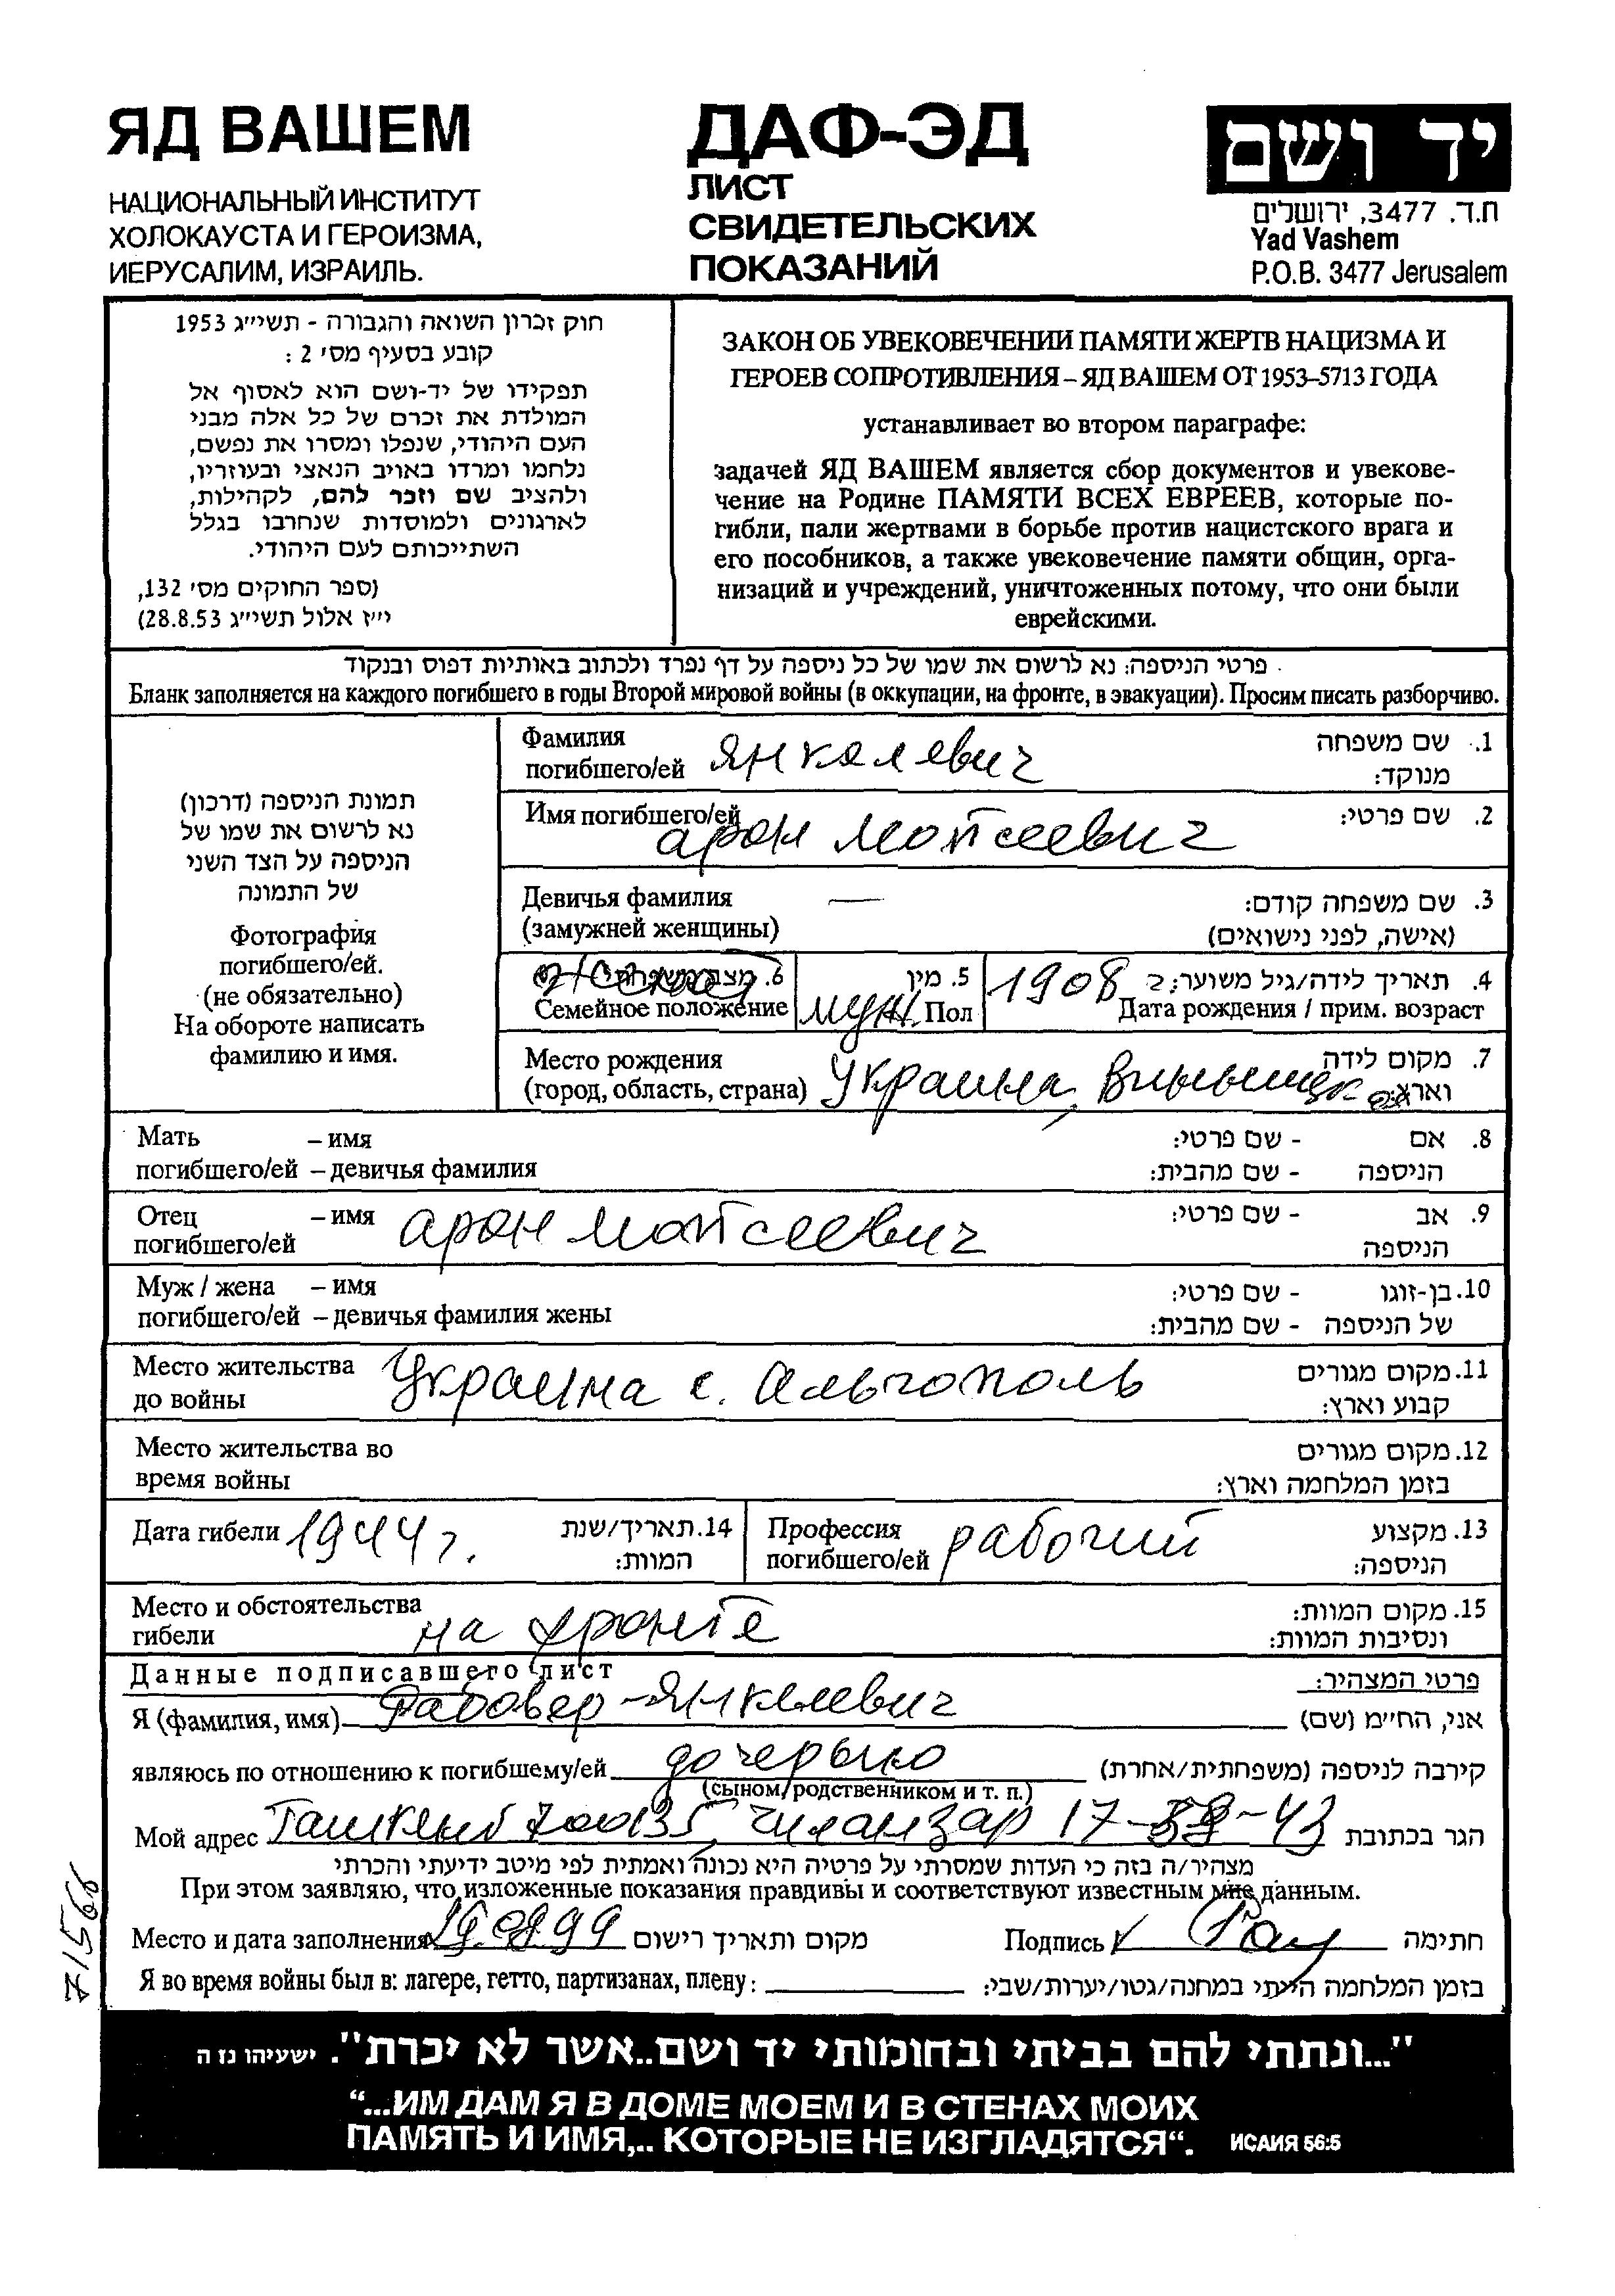 ЯД ВАШЕМ
НАЦИОНАЛЬНЫЙ ИНСТИТУТ
ХОЛОКАУСТА И ГЕРОИЗМА,
ИЕРУСАЛИМ, ИЗРАИЛЬ.
ДАФ-ЭД
ЛИСТ
СВИДЕТЕЛЬСКИХ
ПОКАЗАНИЙ
יד ושם
ת.ד. 3477, ירושלים
Yad Vashem
P.O.B. 3477 Jerusalem
חוק זכרון השואה והגבורה - תשי״ג 1953
קובע בסעיף מס׳ 2 :
תפקידו של יד-ושם הוא לאסוף אל
המולדת את זכרם של כל אלה מבני
העם היהודי, שנפלו ומסרו את נפשם,
נלחמו ומרדו באויב הנאצי ובעוזריו,
ולהציב שם וזכר להם, לקהילות,
לארגונים ולמוסדות שנחרבו בגלל
השתייכותם לעם היהודי.
(ספר החוקים מס׳ 132,
י״ז אלול תשי״ג 28.8.53)
ЗАКОН ОБ УВЕКОВЕЧЕНИИ ПАМЯТИ ЖЕРТВ НАЦИЗМА И
ГЕРОЕВ СОПРОТИВЛЕНИЯ – ЯД ВАШЕМ ОТ 1953–5713 ГОДА
устанавливает во втором параграфе:
задачей ЯД ВАШЕМ является сбор документов и увекове-
чение на Родине ПАМЯТИ ВСЕХ ЕВРЕЕВ, которые по-
гибли, пали жертвами в борьбе против нацистского врага и
его пособников, а также увековечение памяти общин, орга-
низаций и учреждений, уничтоженных потому, что они были
еврейскими.
פרטי הניספה: נא לרשום את שמו של כל ניספה על דף נפרד ולכתוב באותיות דפוס ובנקוד
Бланк заполняется на каждого погибшего в годы Второй мировой войны (в оккупации, на фронте, в эвакуации). Просим писать разборчиво.
תמונת הניספה (דרכון)
נא לרשום את שמו של
הניספה על הצד השני
של התמונה
Фотография
погибшего/ей.
(не обязательно)
На обороте написать
фамилию и имя.
Фамилия Янкелевич 1. שם משפחה
погибшего/ей מנוקד:
Имя погибшего/ей Арон Мойсеевич 2. שם פרטי:
Девичья фамилия — 3. שם משפחה קודם:
(замужней женщины) (אישה, לפני נישואים)
6. מצב משפחתי 5. מין 1908 г 4. תאריך לידה/גיל משוער:
Семейное положение муж. Пол Дата рождения / прим. возраст
Место рождения 7. מקום לידה
(город, область, страна) Украина, וארץ:
Мать – имя 8. אם - שם פרטי:
погибшего/ей – девичья фамилия הניספה - שם מהבית:
Отец – имя Арон Мойсеевич 9. אב - שם פרטי:
погибшего/ей הניספה
Муж / жена – имя 10. בן-זוגו - שם פרטי:
погибшего/ей – девичья фамилия жены של הניספה - שם מהבית:
Место жительства Украина с. Ольгополь 11. מקום מגורים
до войны קבוע וארץ:
Место жительства во 12. מקום מגורים
время войны בזמן המלחמה וארץ:
Дата гибели 1944 г. 14. תאריך/שנת המוות:
Профессия погибшего/ей рабочий 13. מקצוע הניספה:
Место и обстоятельства 15. מקום המוות:
гибели на фронте ונסיבות המוות:
Данные подписавшего лист פרטי המצהיר:
Я (фамилия, имя) Рабовер-Янкелевич אני, החי״מ (שם)
являюсь по отношению к погибшему/ей дочерью קירבה לניספה (משפחתית/אחרת)
(сыном/родственником и т. п.)
Мой адрес Ташкент 700135, Чиланзар 17-38-43 הגר בכתובת
מצהיר/ה בזה כי העדות שמסרתי על פרטיה היא נכונה ואמתית לפי מיטב ידיעתי והכרתי
При этом заявляю, что изложенные показания правдивы и соответствуют известным мне данным.
Место и дата заполнения מקום ותאריך רישום Подпись חתימה
Я во время войны был в: лагере, гетто, партизанах, плену: בזמן המלחמה הייתי במחנה/גטו/יערות/שבי:
71566
"...ונתתי להם בביתי ובחומותי יד ושם..אשר לא יכרת". ישעיהו נז ה
“...ИМ ДАМ Я В ДОМЕ МОЕМ И В СТЕНАХ МОИХ
ПАМЯТЬ И ИМЯ,.. КОТОРЫЕ НЕ ИЗГЛАДЯТСЯ“. ИСАИЯ 56:5